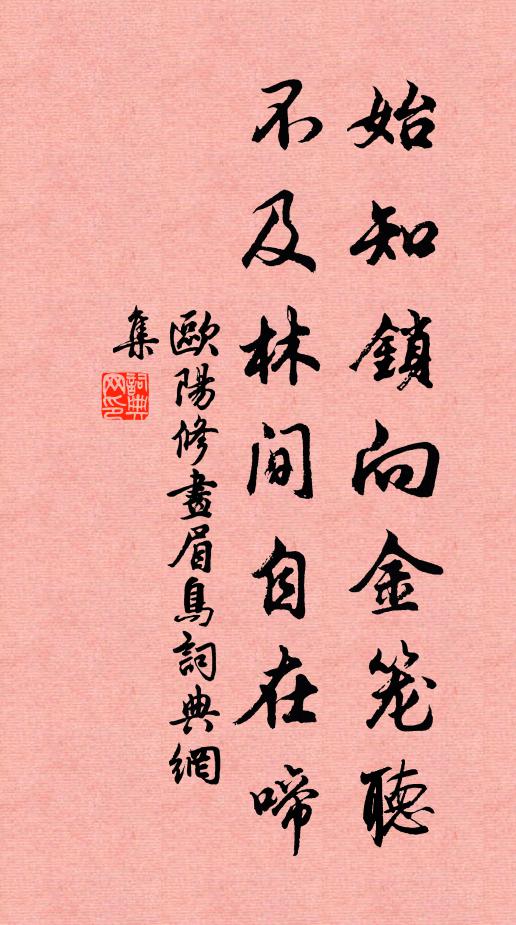 始知鎖向金笼聽
不及林间自在啼
歐陽修畫眉鳥詞典網
集
詞典
网印